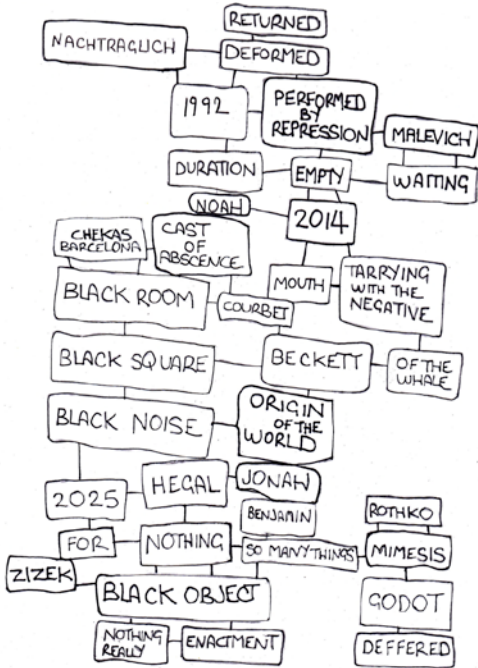 RETURNED
NACHTRAGLICH
DEFORMED
1992
PERFORMED
BY
REPRESSION
MALEVICH
DURATION
EMPTY
WAITING
NOAH
2014
CHEKAS
BARCELONA
CAST
OF
ABSCENCE
MOUTH
TARRYING
WITH THE
NEGATIVE
BLACK ROOM
COURBET
BLACK SQUARE
BECKETT
OF THE
WHALE
BLACK NOISE
ORIGIN
OF THE
WORLD
2025
HEGAL
JONAH
BENJAMIN
ROTHKO
FOR
NOTHING
SO MANY THINGS
MIMESIS
ZIZEK
BLACK OBJECT
GODOT
NOTHING
REALLY
ENACTMENT
DEFFERED